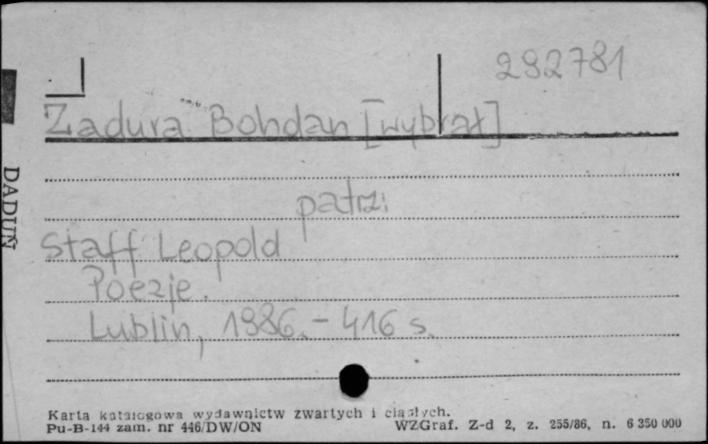 292781
Zadura Bohdan [wybrał]
patrz:
Staff Leopold
Poezje.
Lublin, 1986. - 416 s.
DADUŃ
Karta katalogowa wydawnictw zwartych i ciągłych.
Pu-B-144 zam. nr 446/DW/ON WZGraf. Z-d 2, z. 255/86, n. 6 350 000